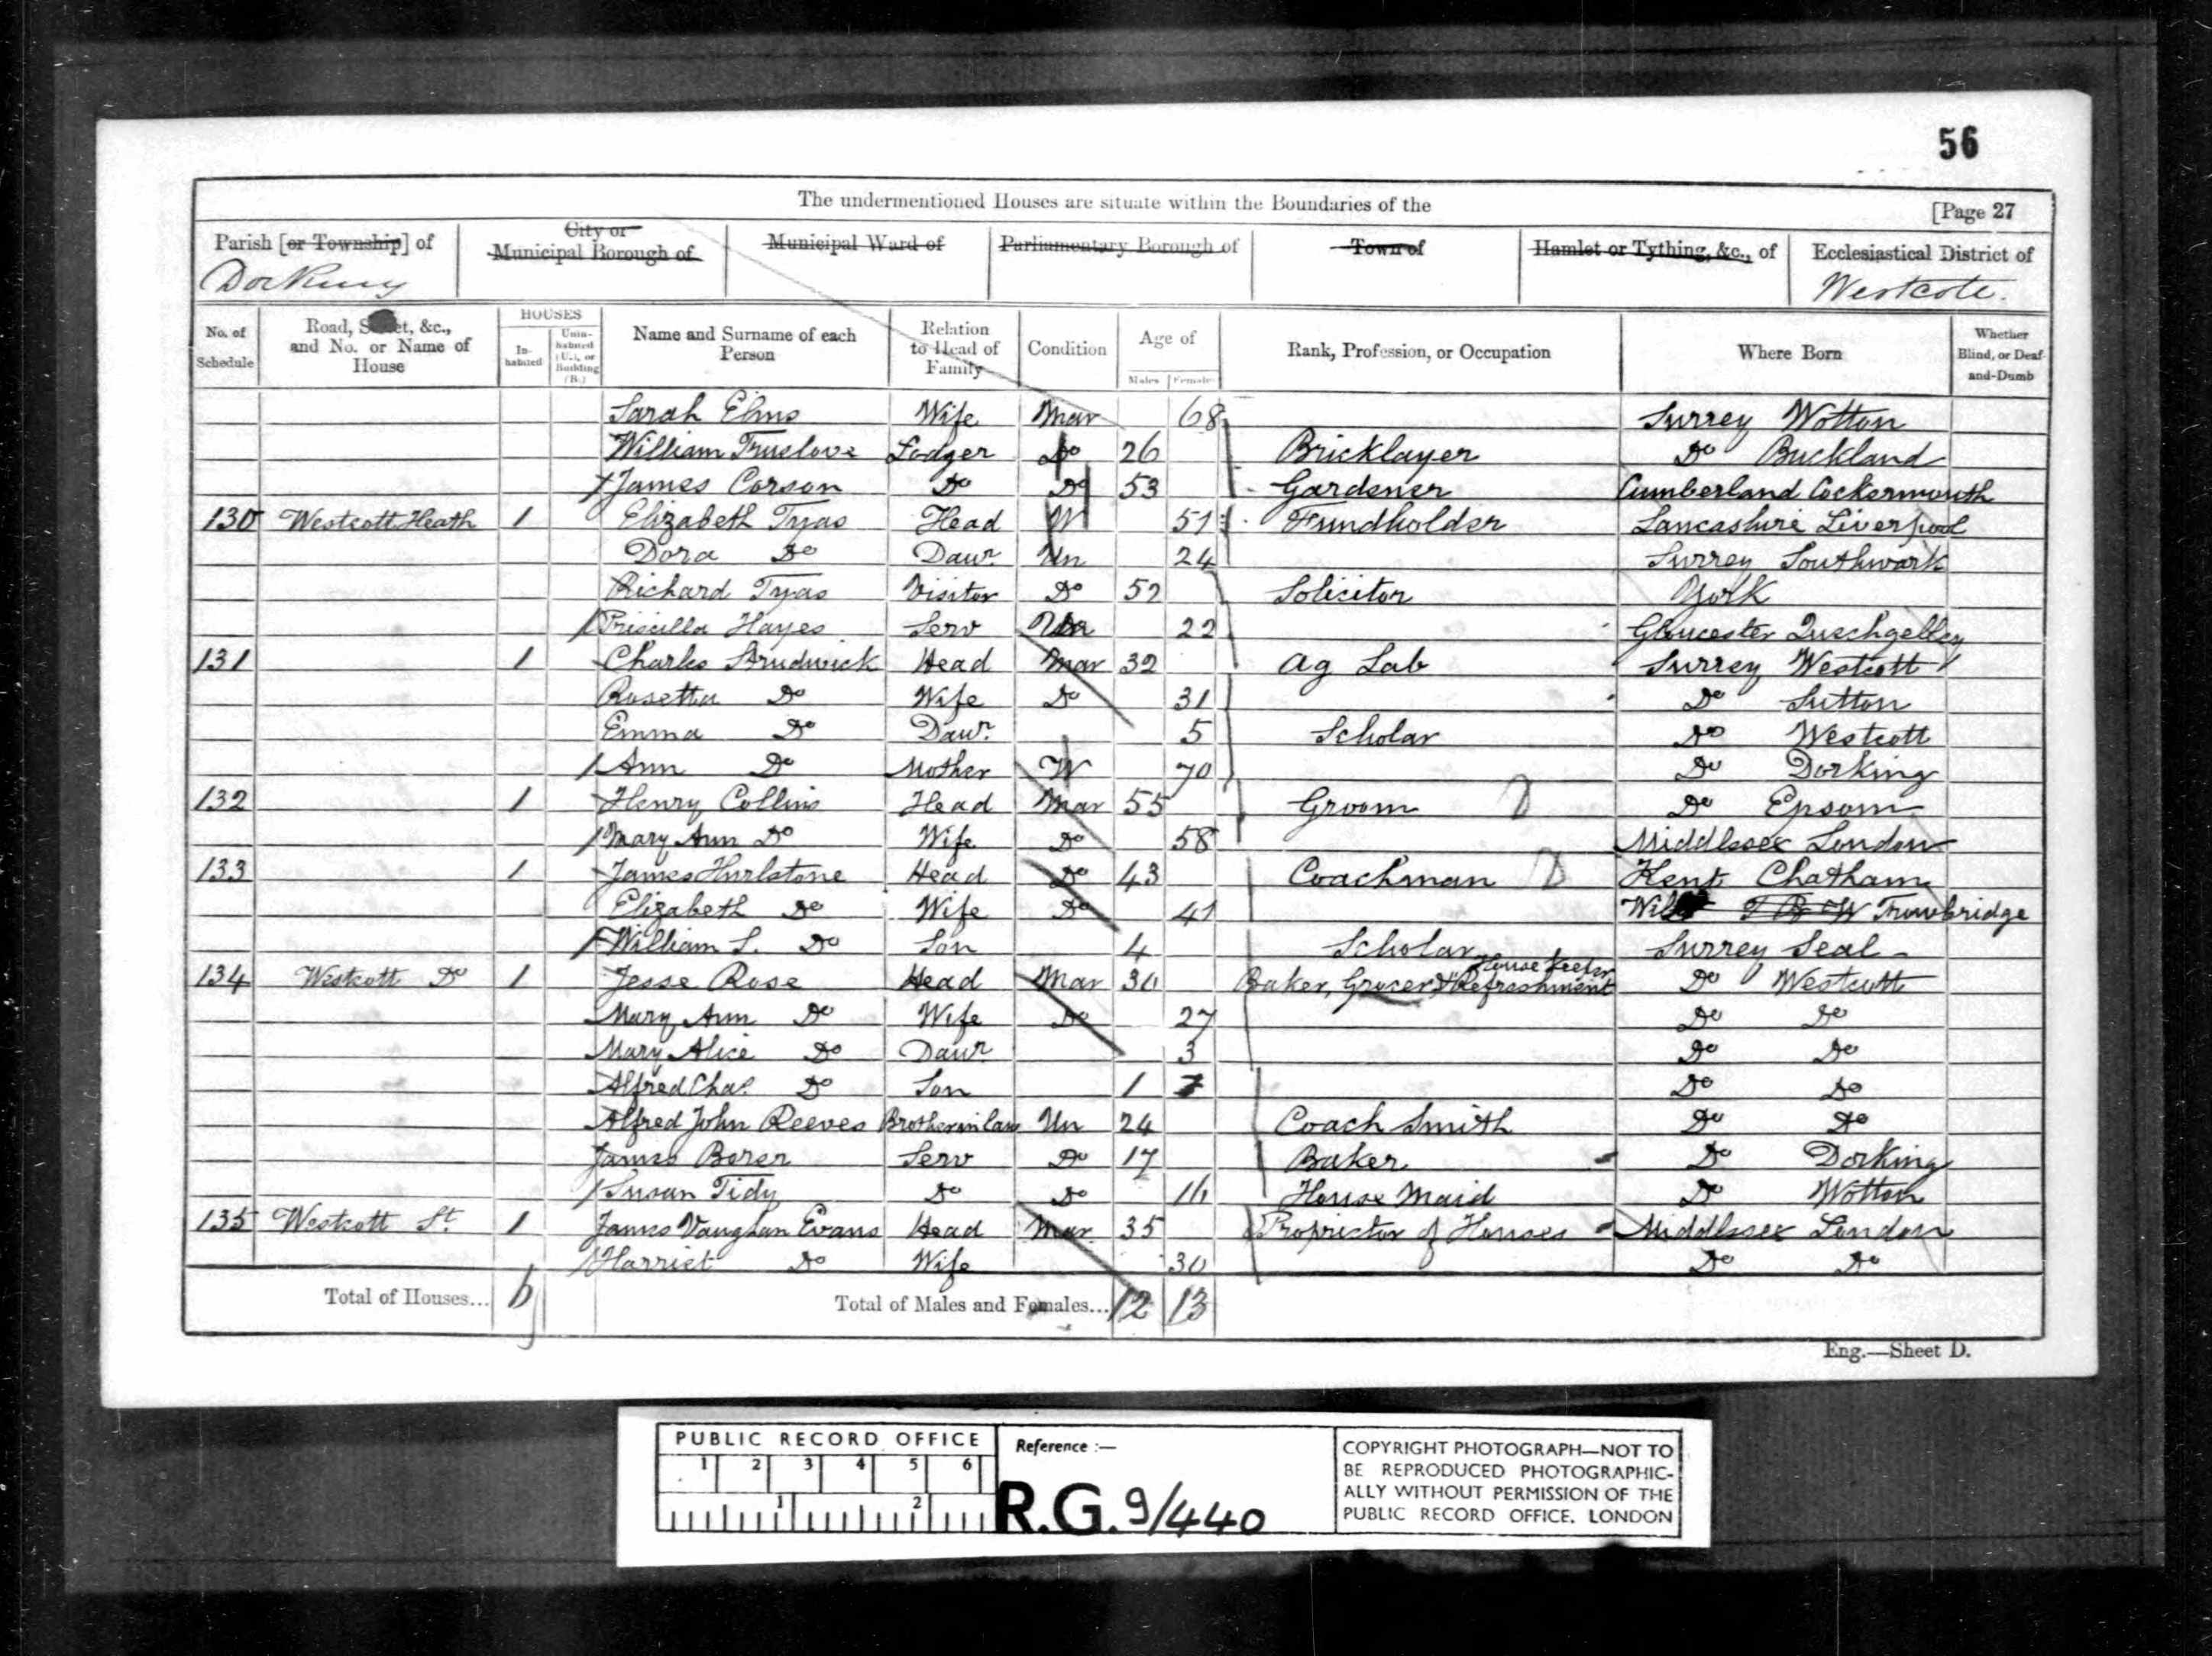 56
The undermentioned Houses are situate within the Boundaries of the
[Page 27
Parish [or Township] of
City or Municipal Borough of
Municipal Ward of
Parliamentary Borough of
Town of
Hamlet or Tything, &c., of
Ecclesiastical District of
Dorking
Westcote.
No. of Schedule
Road, Street, &c., and No. or Name of House
HOUSES
Inhabited
Uninhabited (U.), or Building (B.)
Name and Surname of each Person
Relation to Head of Family
Condition
Age of
Males
Females
Rank, Profession, or Occupation
Where Born
Whether Blind, or Deaf-and-Dumb
Sarah Elms Wife Mar 68 Surrey Wotton
William Truelove Lodger Do 26 Bricklayer Do Buckland
James Corson Do Do 53 Gardener Cumberland Cockermouth
130 Westcott Heath 1 Elizabeth Tyas Head W 51 Fundholder Lancashire Liverpool
Dora Do Daur. Un 24 Surrey Southwark
Richard Tyas Visitor Do 52 Solicitor York
Priscilla Hayes Serv Un 22 Gloucester
131 1 Charles Strudwick Head Mar 32 Ag Lab Surrey Westcott
Rosetta Do Wife Do 31 Do Sutton
Emma Do Daur. 5 Scholar Do Westcott
Ann Do Mother W 70 Do Dorking
132 1 Henry Collins Head Mar 55 Groom Do Epsom
Mary Ann Do Wife Do 58 Middlesex London
133 1 James Hurlstone Head Do 43 Coachman Kent Chatham
Elizabeth Do Wife Do 41 Trowbridge
William S. Do Son 4 Scholar Surrey Seal
134 Westcott Do 1 Jesse Rose Head Mar 30 Baker, Grocer & Refreshment House Keeper Do Westcott
Mary Ann Do Wife Do 27 Do Do
Mary Alice Do Daur 3 Do Do
Alfred Chas. Do Son 1 Do Do
Alfred John Reeves Brother in law Un 24 Coach Smith Do Do
James Borer Serv Do 17 Baker Do Dorking
Susan Tidy Do Do 16 House Maid Do Wotton
135 Westcott St. 1 James Vaughan Evans Head Mar. 35 Proprietor of Houses Middlesex London
Harriet Do Wife 30 Do Do
Total of Houses... 6
Total of Males and Females... 12 13
Eng.—Sheet D.
PUBLIC RECORD OFFICE
1 2 3 4 5 6
1 2
Reference :—
R.G. 9/440
COPYRIGHT PHOTOGRAPH—NOT TO
BE REPRODUCED PHOTOGRAPHIC-
ALLY WITHOUT PERMISSION OF THE
PUBLIC RECORD OFFICE. LONDON